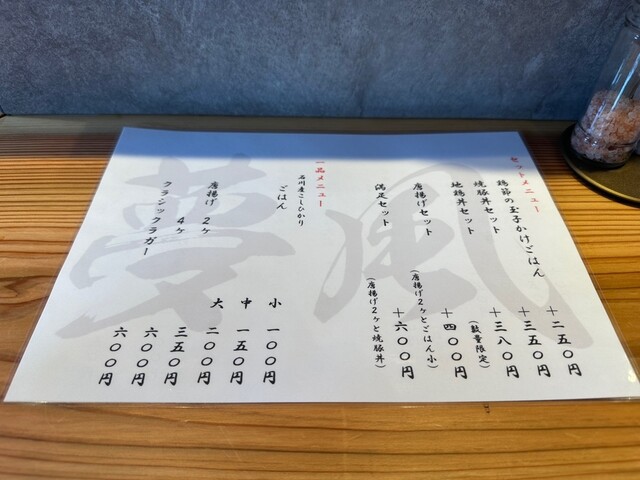 セットメニュー
鶏節の玉子かけごはん +二五〇円
焼豚丼セット +三五〇円
地鶏丼セット +三八〇円
(数量限定)
唐揚げセット +四〇〇円
(唐揚げ2ヶとごはん小)
満足セット +六〇〇円
(唐揚げ2ヶと焼豚丼)
一品メニュー
石川産こしひかり
ごはん 小 一〇〇円
中 一五〇円
大 二〇〇円
唐揚げ 2ヶ 三五〇円
4ヶ 六〇〇円
クラシックラガー 六〇〇円
夢風